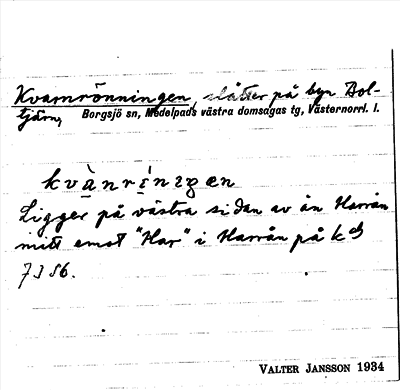 Kvarnrönningen, slåtter på byn Bol-
tjärn, Borgsjö sn, Medelpads västra domsagas tg, Västernorrl. l.
kvànríningen
Ligger på västra sidan av ån Harrån
mitt emot "Har" i Harrån på k
7356.
VALTER JANSSON 1934